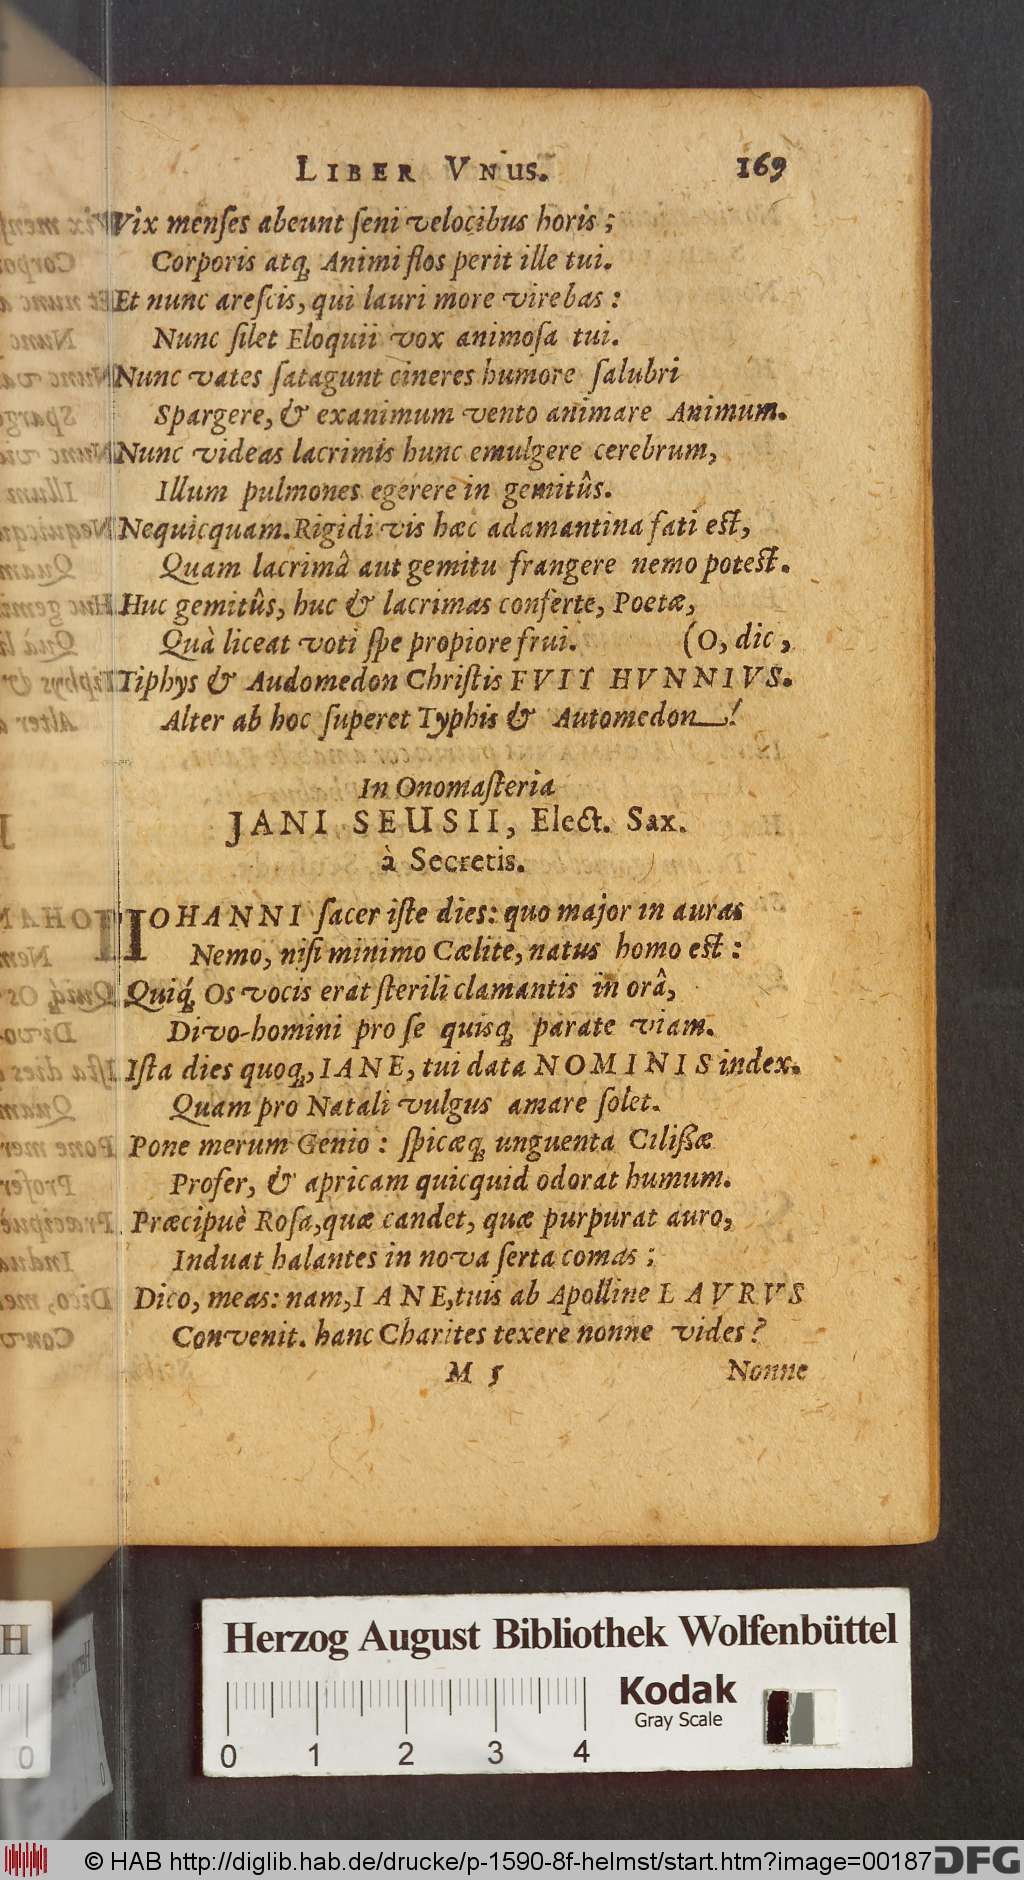 LIBER VNUS. 169
Vix menſes abeunt ſeni velocibus horis;
Corporis atq́; Animi flos perit ille tui.
Et nunc areſcis, qui lauri more virebas:
Nunc ſilet Eloquii vox animoſa tui.
Nunc vates ſatagunt cineres humore ſalubri
Spargere, & exanimum vento animare Animum.
Nunc videas lacrimis hunc emulgere cerebrum,
Illum pulmones egerere in gemitûs.
Nequicquam. Rigidi vis hæc adamantina fati eſt,
Quam lacrimâ aut gemitu frangere nemo poteſt.
Huc gemitûs, huc & lacrimas conferte, Poetæ,
Quà liceat voti ſpe propiore frui. (O, dic,
Tiphys & Audomedon Chriſtis FVIT HVNNIVS.
Alter ab hoc ſuperet Typhis & Automedon!
In Onomaſteria
JANI SEUSII, Elect. Sax.
à Secretis.
IOHANNI ſacer iſte dies: quo major in auras
Nemo, niſi minimo Cælite, natus homo eſt:
Quiq́; Os vocis erat ſterili clamantis in orâ,
Divo-homini pro ſe quisq; parate viam.
Iſta dies quoq;, IANE, tui data NOMINIS index.
Quam pro Natali vulgus amare ſolet.
Pone merum Genio: ſpicæq; unguenta Cilißæ
Profer, & apricam quicquid odorat humum.
Præcipuè Roſa, quæ candet, quæ purpurat auro,
Induat halantes in nova ſerta comas;
Dico, meas: nam, IANE, tuis ab Apolline LAVRUS
Convenit. hanc Charites texere nonne vides?
M 5 Nonne
Herzog August Bibliothek Wolfenbüttel
Kodak
Gray Scale
0 1 2 3 4
© HAB http://diglib.hab.de/drucke/p-1590-8f-helmst/start.htm?image=00187 DFG